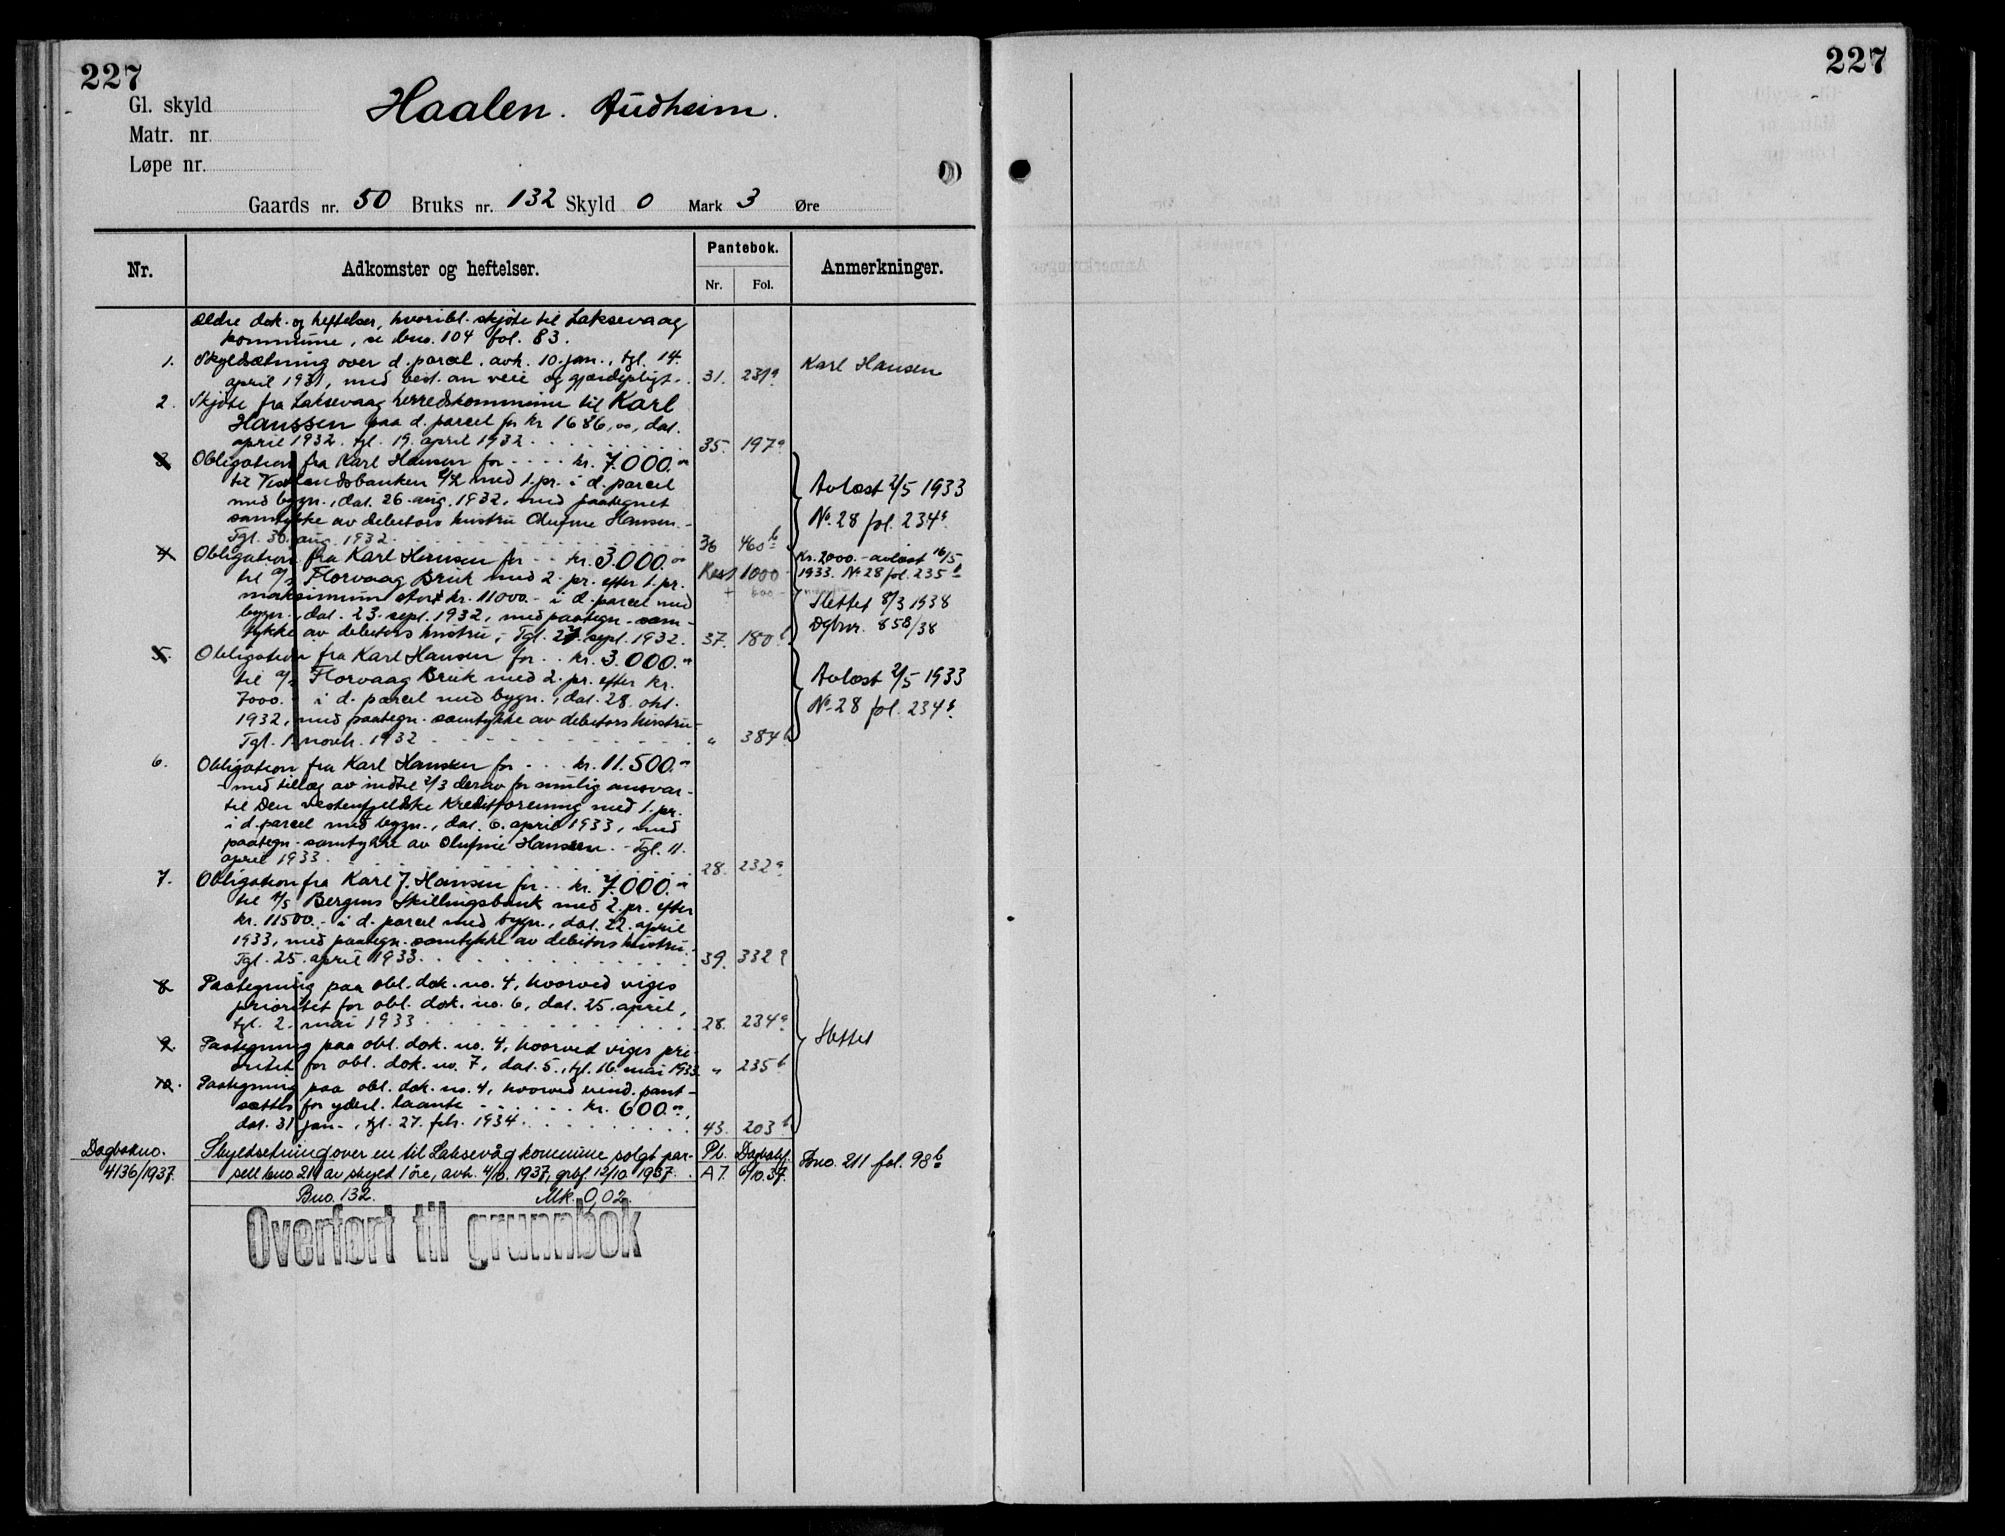 227
227
Gl. skyld
Haalen. Audheim.
Matr. nr.
Løpe nr.
Gaards nr. 50 Bruks nr. 132 Skyld 0 Mark 3 Øre
Nr.
Adkomster og heftelser.
Pantebok.
Nr. Fol.
Anmerkninger.
Ældre dok. og heftelser, hvoribl. skjøte til Laksevaag
kommune, se bno. 104 fol. 83.
1. Skyldsætning over d. parcel. avh. 10. jan., tgl. 14. Karl Hansen
april 1931, med best. om veie og gjærdepligt. 31. 231a
2. Skjøte fra Laksevaag herredskommune til Karl
Hanssen paa d. parcel for kr 1686,00, dat.
april 1932. tgl. 19. april 1932 35. 197a
3. Obligation fra Karl Hansen for kr. 7.000.00
til Vestlandsbanken A/L med 1. pr. i d. parcel Avlæst 2/5 1933
med bygn., dat. 26. aug. 1932, med paategnet
samtykke av debitors hustru Olufine Hansen. No. 28 fol. 234a
Tgl. 30. aug. 1932 36 460b
4. Obligation fra Karl Hansen for kr. 3.000.00 Kr. 2000.- avlæst 16/5
til A/S Florvaag Bruk med 2. pr. efter 1. pr. Rest 1000 1933. No 28 fol. 235b
maksimum stort kr. 11000.- i d. parcel med + 600 Slettet 8/3 1938
bygn., dat. 23. sept. 1932, med paategn. sam-
tykke av debitors hustru, Tgl. 27. sept. 1932. 37. 180b Dgbnr. 858/38
5. Obligation fra Karl Hansen for kr. 3.000.00
til A/S Florvaag Bruk med 2. pr. efter kr. Avlæst 2/5 1933
7000.- i d. parcel med bygn., dat. 28. okt. No. 28 fol. 234b
1932, med paategn. samtykke av debitors hustru
Tgl. 1. novb. 1932 " 384b
6. Obligation fra Karl Hansen for kr. 11.500.00
med tillæg av indtil 2/3 derav for mulig ansvar
til Den vestenfjeldske Kreditforening med 1. pr.
i d. parcel med bygn., dat. 6. april 1933, med
paategn. samtykke av Olufine Hansen. Tgl. 11.
april 1933 28. 232a
7. Obligation fra Karl J. Hansen for kr. 7.000.00
til A/S Bergens Skillingsbank med 2. pr. efter
kr. 11500.- i d. parcel med bygn., dat. 22. april
1933, med paategn. samtykke av debitors hustru
Tgl. 25. april 1933 39. 332a
8. Paategning paa obl. dok. no. 4, hvorved viges
prioritet for obl. dok. no. 6, dat. 25. april,
tgl. 2. mai 1933 28. 234a
9. Paategning paa obl. dok. no. 4, hvorved viges pri- Slettet
oritet for obl. dok. no. 7, dat. 5., tgl. 16. mai 1933 " 235b
10. Paategning paa obl. dok. no. 4, hvorved eiend. pant-
sættes for yderl. laante kr. 600.00,
dat. 31. jan., tgl. 27. feb. 1934. 43. 203b
Dagbokno. Skyldsetning over en til Laksevåg kommune solgt par- Pb. Dagbokf.
4136/1937. sell bno. 211 av skyld 1 øre, avh. 4/6. 1937, grbf. 12/10 1937. A7. 6/10.37. Bno. 211 fol. 98b
Bno. 132. Mk. 0,02.
Overført til grunnbok